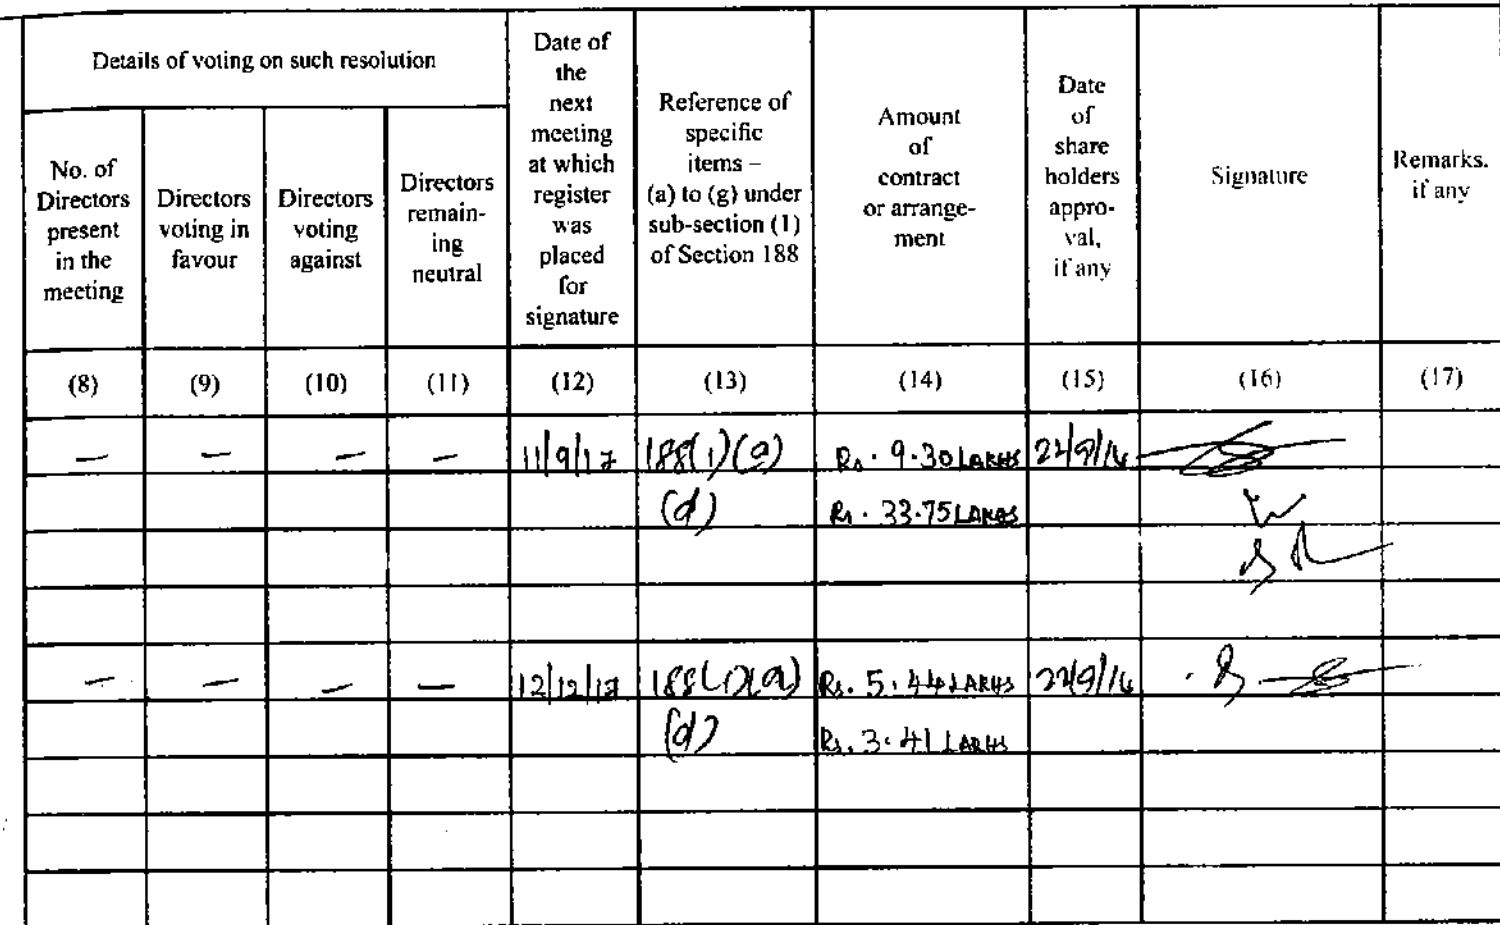 Details of voting on such resolution
No. of
Directors
present
in the
meeting
Directors
voting in
favour
Directors
voting
against
Directors
remain-
ing
neutral
Date of
the
next
meeting
at which
register
was
placed
for
signature
Reference of
specific
items –
(a) to (g) under
sub-section (1)
of Section 188
Amount
of
contract
or arrange-
ment
Date
of
share
holders
appro-
val,
if any
Signature
Remarks.
if any
(8) (9) (10) (11) (12) (13) (14) (15) (16) (17)
— — — — 11/9/17 188(1)(a) Rs. 9.30 LAKHS 22/9/16
(d) Rs. 33.75 LAKHS
— — — — 12/12/17 188(1)(a) Rs. 5.44 LAKHS 22/9/16
(d) Rs. 3.41 LAKHS